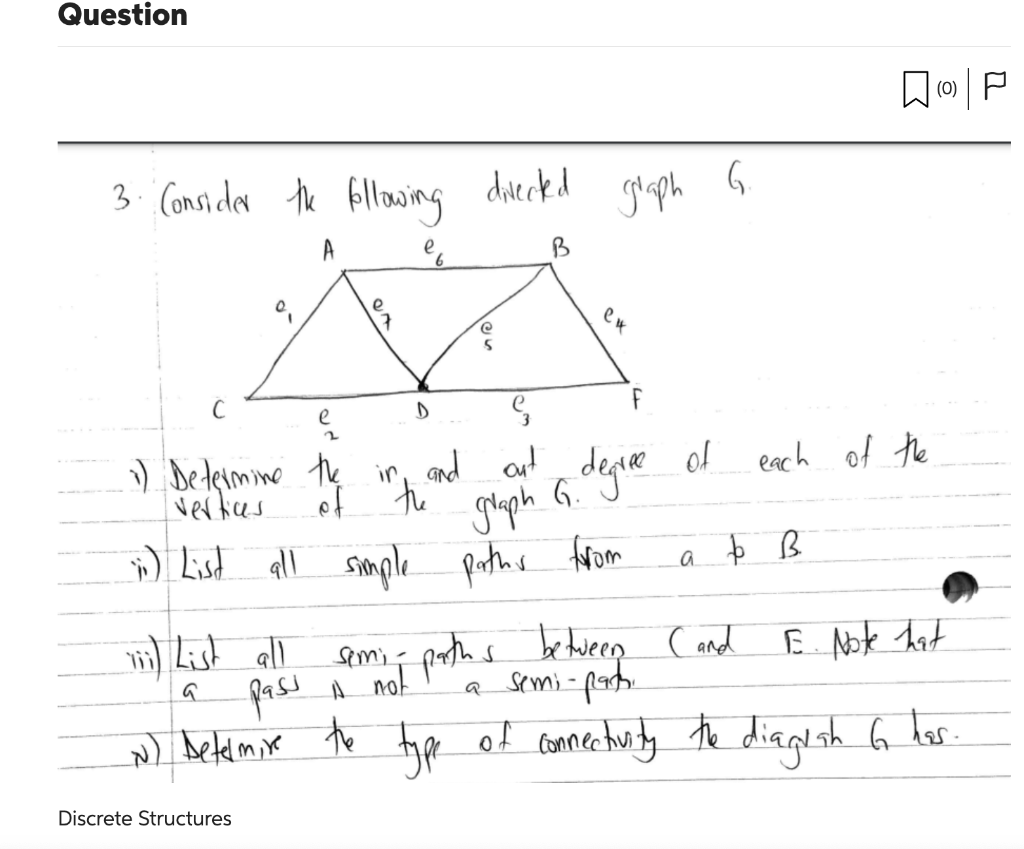 Question
(0)
3. Consider the following directed graph G.
A e6 B
e1 e7 e5 e4
C e2 D e3 F
i) Determine the in and out degree of each of the
vertices of the graph G.
ii) List all simple paths from a to B
iii) List all semi-paths between C and E. Note that
a pass is not a semi-path.
iv) Determine the type of connectivity the diagraph G has.
Discrete Structures